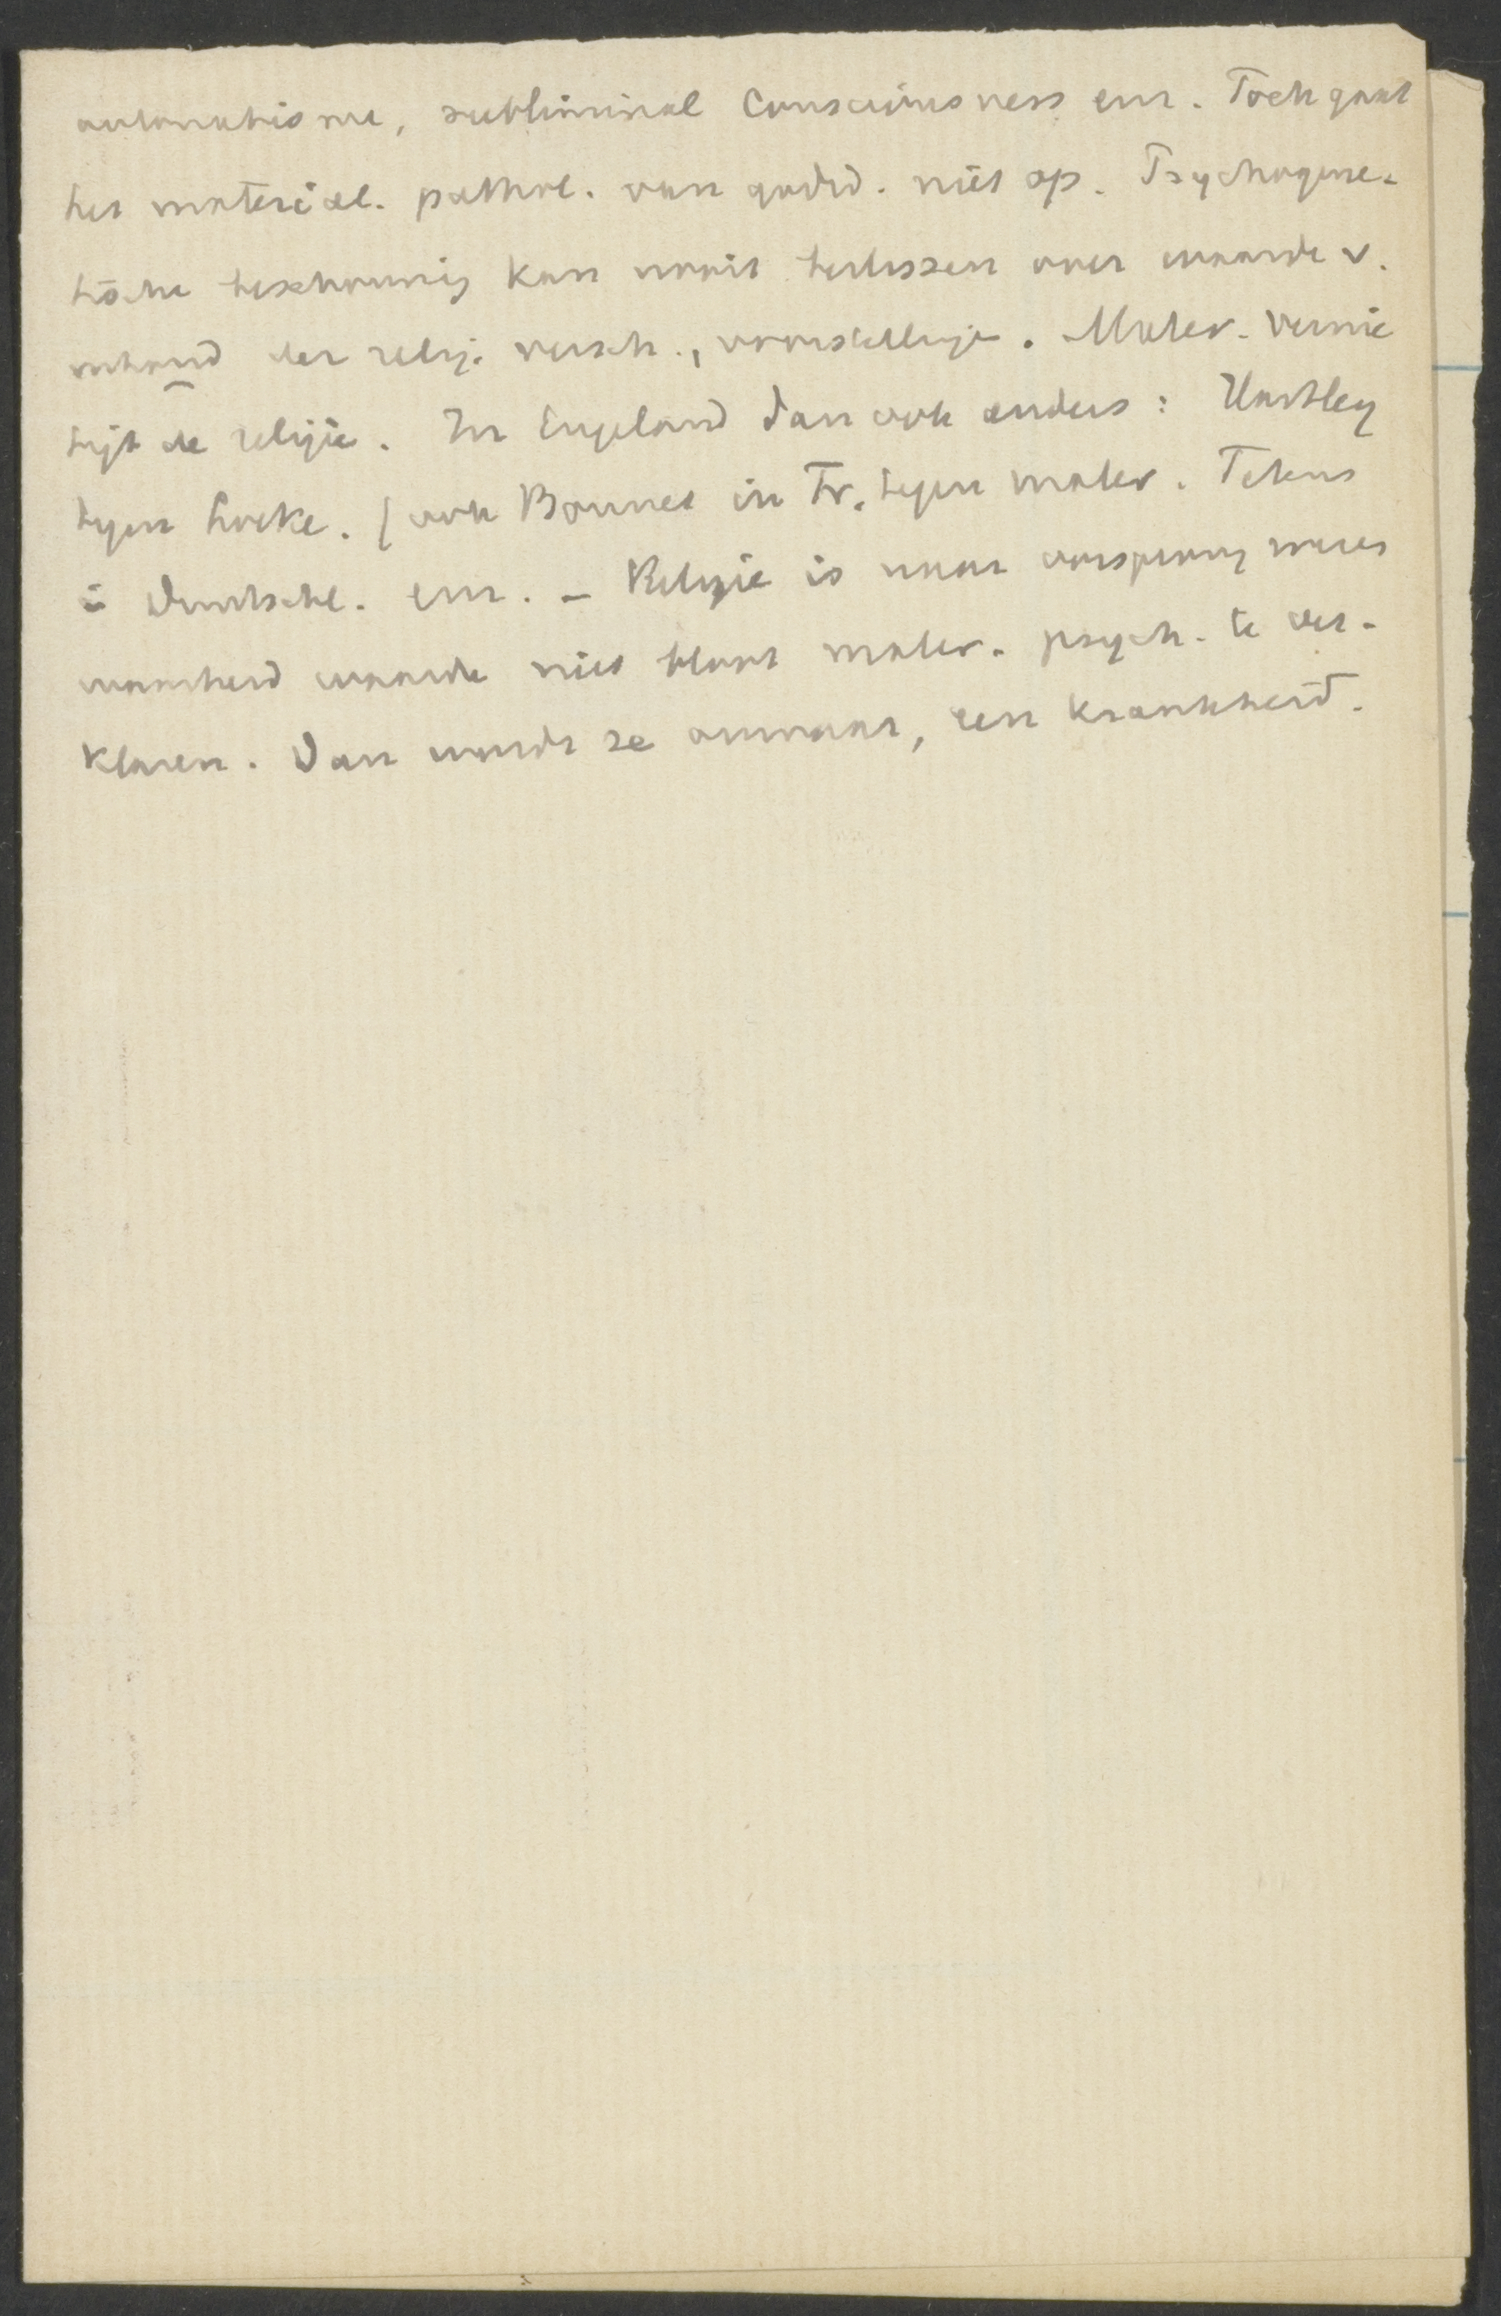 automatisme, subliminal Consciousness enz. Toch gaat
het material. pathol. van godsd. niet op. Psychogene-
tische beschouwing kan nooit beslissen over waarde v.
inhoud der relig. versch., voorstellingen. Mater. vernie
tigt de religie. In Engeland dan ook anders: Hartley
tegen Locke. (ook Bonnet in Fr. tegen mater. Tetens
in Duitschl. enz. - Religie is naar oorsprong wezen
waarheid waarde niet bloot mater. psych. te ver-
klaren. Dan wordt ze onwaar, een krankheid.